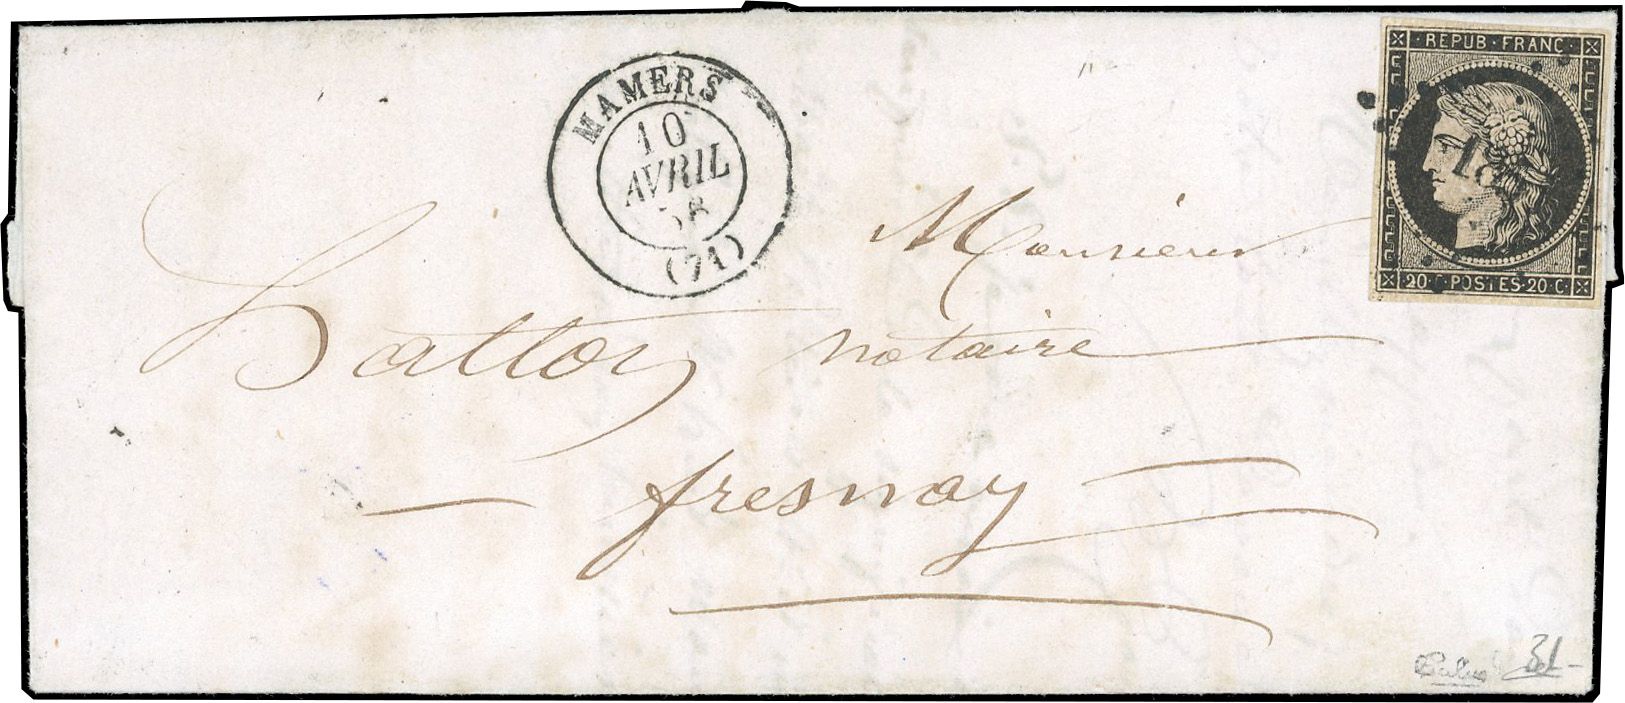 REPUB·FRANC·
20·C·POSTES·20·C·
MAMERS
10
AVRIL
58
(71)
Monsieur
notaire
fresnay